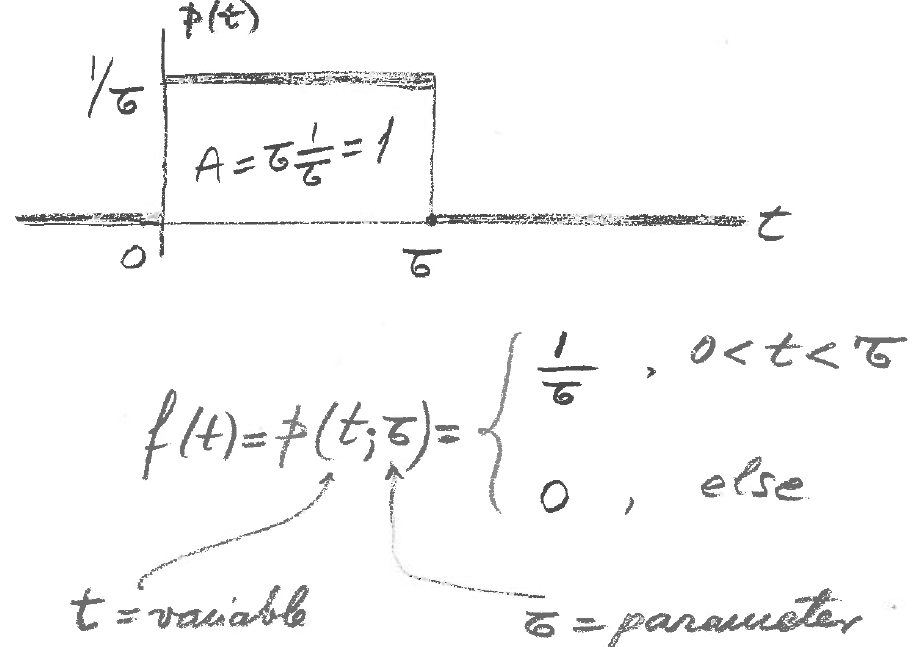 p(t)
1/τ
A = τ 1/τ = 1
t
0 τ
f(t) = p(t;τ) = { 1/τ , 0 < t < τ
0 , else
t = variable
τ = parameter